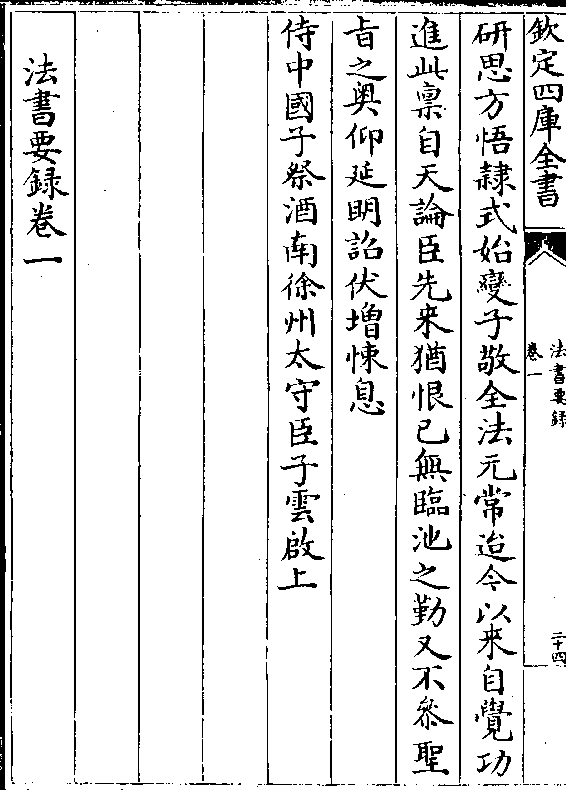 欽定四庫全書
法書要録
卷一
二十四
研思方悟隸式始變子敬全法元常迨今以来自覺功
進此禀自天論臣先来猶恨已無臨池之勤又不叅聖
㫖之奥仰延明詔伏增悚息
侍中國子祭酒南徐州太守臣子雲啟上
法書要録卷一